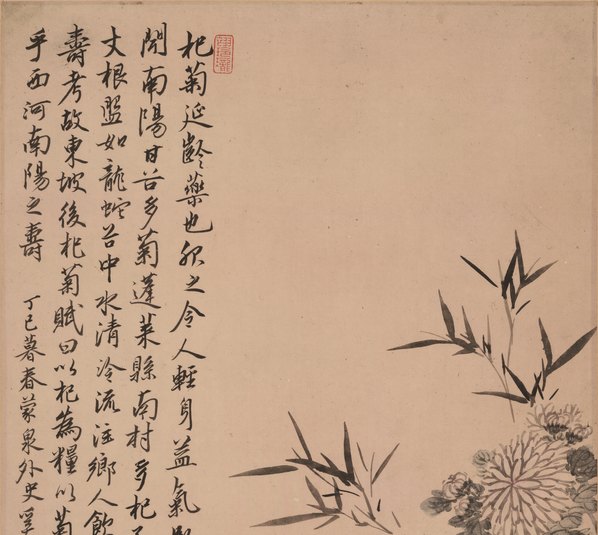 杞菊延齡藥也服之令人輕身益氣
聞南陽甘谷多菊蓬萊縣南村多杞
丈根盤如龍蛇谷中水清冷流注鄉人飲
壽考故東坡後杞菊賦曰以杞為糧以菊
乎西河南陽之壽
丁巳暮春蒙泉外史